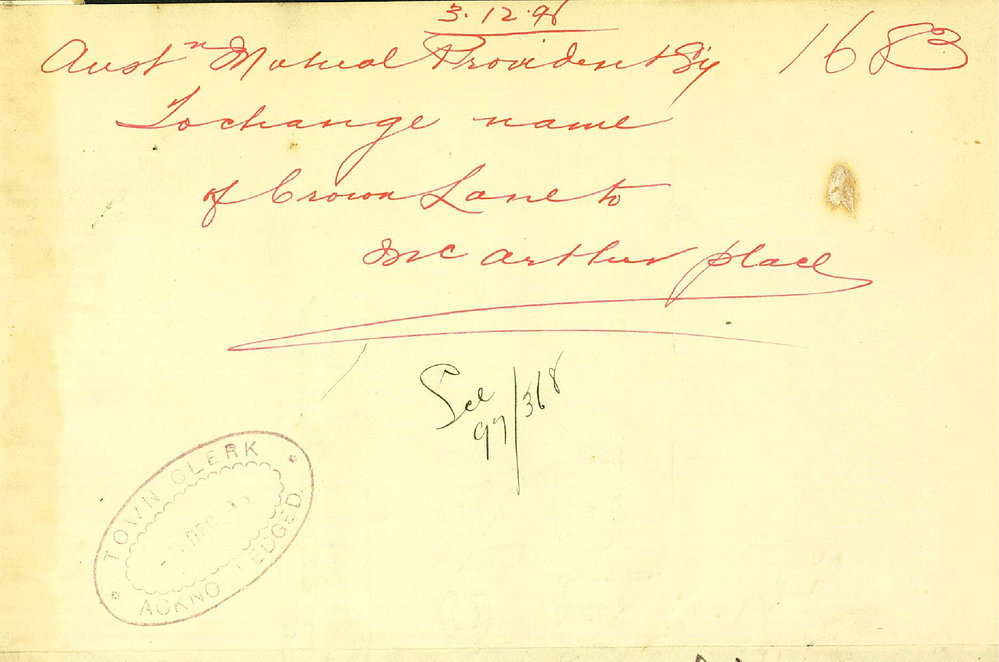 3.12.96
Austn Mutual Provident Sy 1683
To change name
of Crown Lane to
McArthur place
See
97/368
TOWN CLERK
DEC
ACKNOWLEDGED.